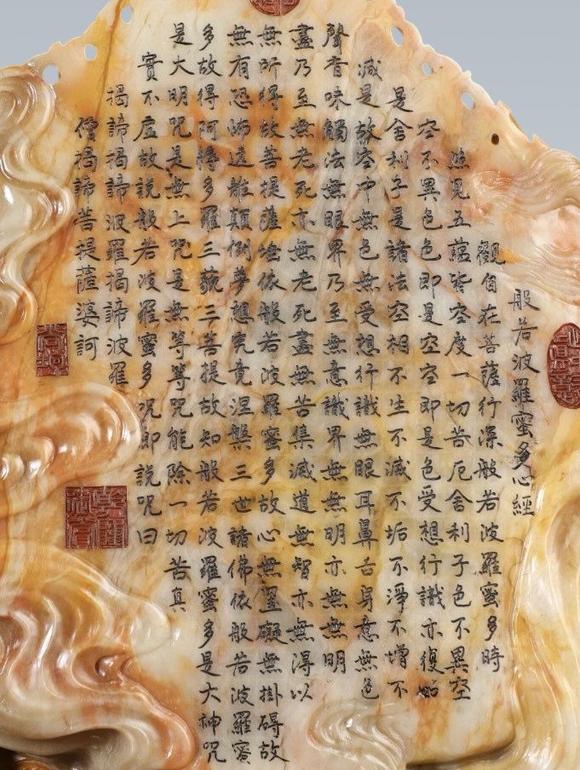 般若波羅蜜多心經
觀自在菩薩行深般若波羅蜜多時
照見五蘊皆空度一切苦厄舍利子色不異空
空不異色色即是空空即是色受想行識亦復如
是舍利子是諸法空相不生不滅不垢不淨不增不
減是故空中無色無受想行識無眼耳鼻舌身意無色
聲香味觸法無眼界乃至無意識界無無明亦無無明
盡乃至無老死亦無老死盡無苦集滅道無智亦無得以
無所得故菩提薩埵依般若波羅蜜多故心無罣礙無掛碍故
無有恐怖遠離顛倒夢想究竟涅槃三世諸佛依般若波羅蜜
多故得阿耨多羅三藐三菩提故知般若波羅蜜多是大神咒
是大明咒是無上咒是無等等咒能除一切苦真
實不虛故說般若波羅蜜多咒即說咒曰
揭諦揭諦波羅揭諦波羅
僧揭諦菩提薩婆訶